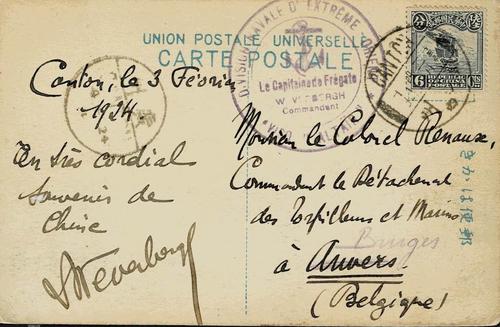 UNION POSTALE UNIVERSELLE
CARTE POSTALE
DIVISION NAVALE D'EXTRÊME ORIENT
Le Capitaine de Frégate
Commandant
CANTON
6
REPUBLIC
CTS
Canton, le 3 Février
1924
Un très cordial
souvenir de
Chine
Monsieur le Colonel Renaux,
Commandant le Détachement
des Torpilleurs et Marins
Bruges
à Anvers
(Belgique)
きかは便郵